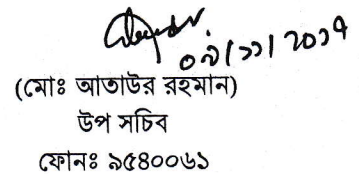 ০৯/১১/২০১৭
(মোঃ আতাউর রহমান)
উপ সচিব
ফোনঃ ৯৫৪০০৬১